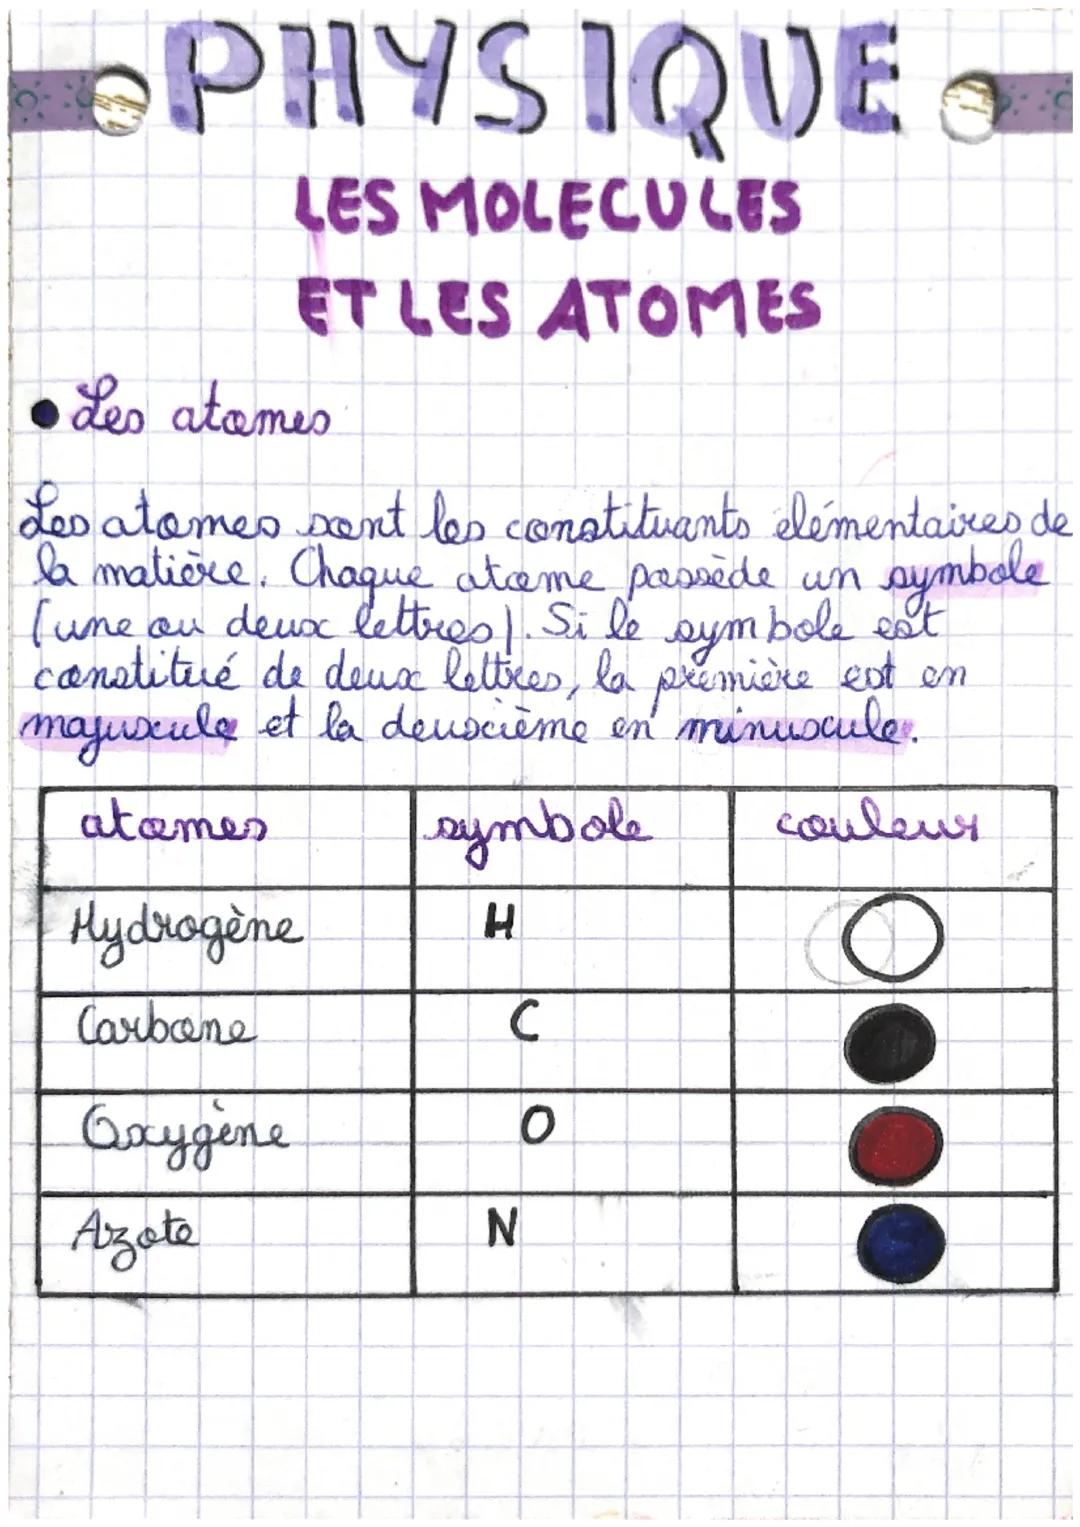 PHYSIQUE
LES MOLECULES
ET LES ATOMES
• Les atomes
Les atomes sont les constituants élémentaires de
la matière. Chaque atome possède un symbole
(une ou deux lettres). Si le symbole est
constitué de deux lettres, la première est en
majuscule et la deuxième en minuscule.
atomes symbole couleur
Hydrogène H
Carbone C
Oxygène O
Azote N